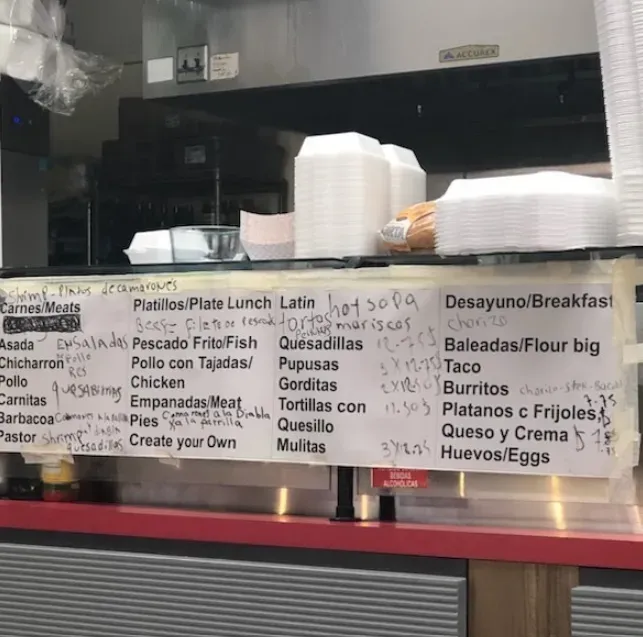 ACCUREX
Shrimp-Platos de camarones
Carnes/Meats
Asada Ensaladas
Chicharron Pollo
Res
Pollo
Carnitas quesabirrias
Barbacoa
Pastor Shrimp
quesadillas
Platillos/Plate Lunch
Beef- filete de pescado
Pescado Frito/Fish
Pollo con Tajadas/
Chicken
Empanadas/Meat
Pies Camarones a la Diabla
y a la parrilla
Create your Own
Latin hot sopa
tortas mariscos
Quesadillas 12.75$
Pupusas 3x12.75$
Gorditas 2x12.50$
Tortillas con 12.50$
Quesillo
Mulitas 3x12.75
Desayuno/Breakfast
chorizo
Baleadas/Flour big
Taco
Burritos
7.75
Platanos c Frijoles,
Queso y Crema
Huevos/Eggs
BEBIDAS
ALCOHÓLICAS